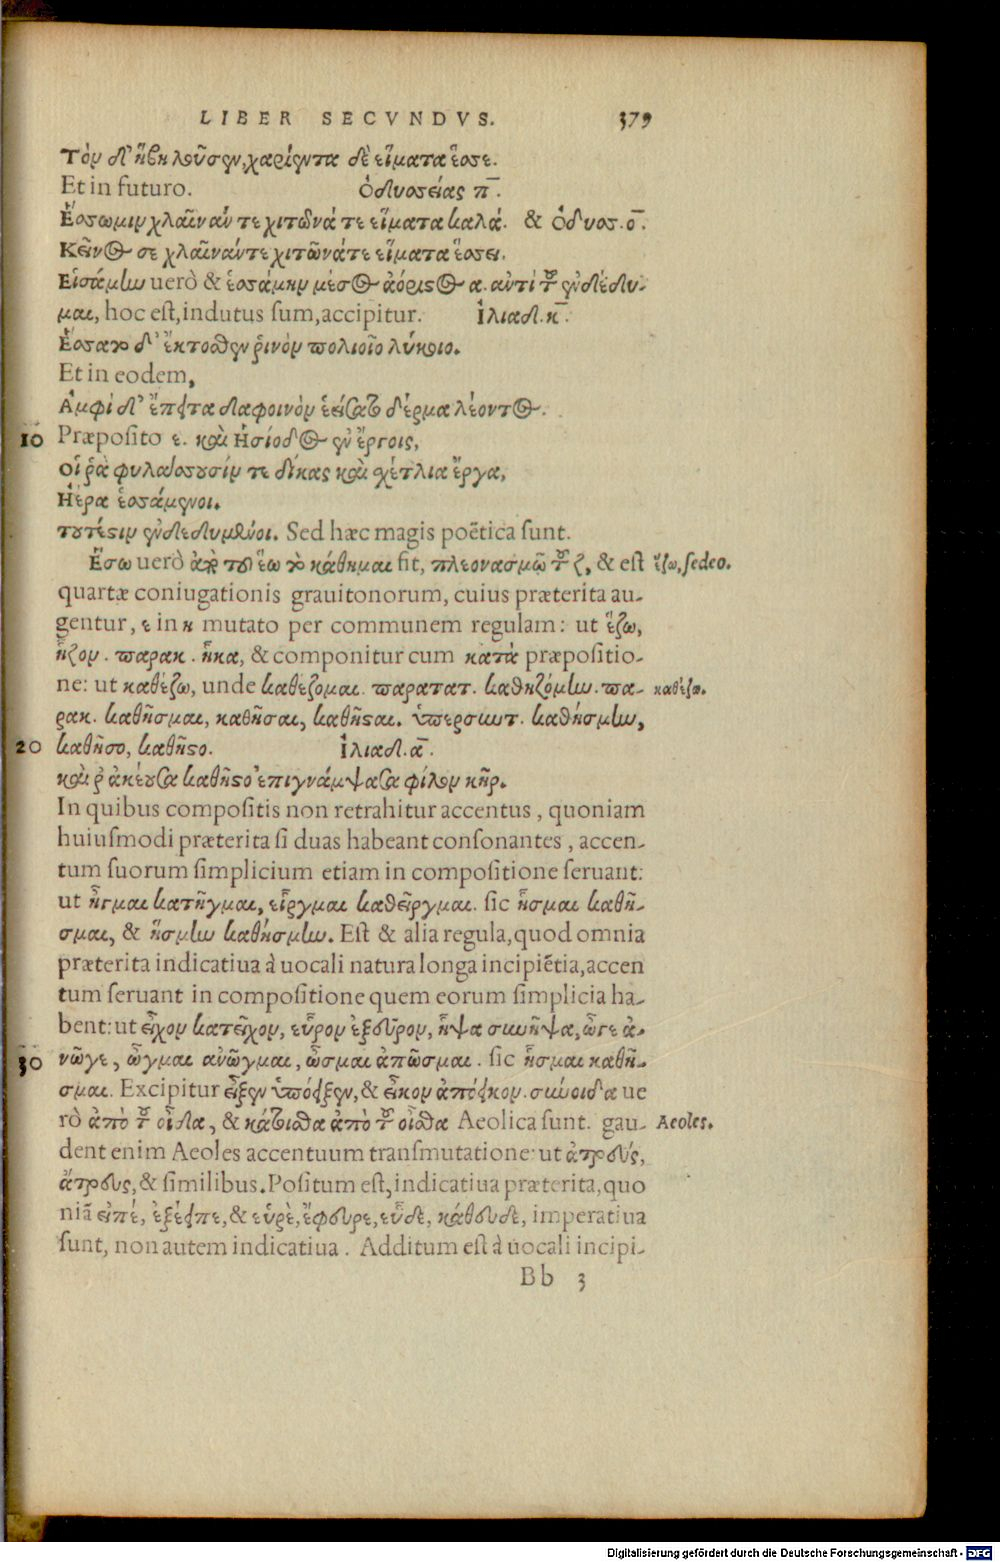 LIBER SECVNDVS. 379
Τὸν δ' ἥβη λοῦσεν, χαρίεντα δὲ εἵματα ἕσσε.
Et in futuro. Ὀδυσσείας π̄.
Ἕσσωμιν χλαῖνάν τε χιτῶνά τε εἵματα καλά. & Ὀδυσ. ο̄.
Κεῖνος σε χλαῖνάν τε χιτῶνά τε εἵματα ἕσσει.
Εἱσάμην uerò & ἑσσάμην μέσος ἀόριστος α. αντὶ τοῦ ἐνδέδυ-
μαι, hoc est, indutus sum, accipitur. Ἰλιαδ. κ̄.
Ἕσσατο δ' ἔκτοσθεν ῥινὸν πολιοῖο λύκοιο.
Et in eodem,
Ἀμφὶ δ' ἔπειτα δαφοινὸν ἑείσατο δέρμα λέοντος.
10 Præposito ε. καὶ Ἡσίοδος ἐν ἔργοις,
οἵ ῥα φυλάσσουσίν τε δίκας καὶ σχέτλια ἔργα,
Ἠέρα ἑσσάμενοι.
τουτέστιν ἐνδεδυμένοι. Sed hæc magis poëtica sunt.
Ἕσω uerò ἀπὸ τοῦ ἕω τὸ κάθημαι fit, πλεονασμῷ τοῦ ζ, & est ἕζω, sedeo.
quartæ coniugationis grauitonorum, cuius præterita au-
gentur, ε in η mutato per communem regulam: ut ἕζω,
ἧζον. παρακ. ἧκα, & componitur cum κατὰ præpositio-
ne: ut καθέζω, unde καθέζομαι. παρατατ. καθηζόμην. πα- καθέζω.
ρακ. καθῆσμαι, καθῆσαι, καθῆσται. ὑπερσωτ. καθήσμην,
20 καθῆσο, καθῆστο. Ἰλιαδ. ᾱ.
καὶ ῥ' ἀκέουσα καθῆστο ἐπιγνάμψασα φίλον κῆρ.
In quibus compositis non retrahitur accentus, quoniam
huiusmodi præterita si duas habeant consonantes, accen-
tum suorum simplicium etiam in compositione seruant:
ut ἦγμαι κατῆγμαι, εἶργμαι καθεῖργμαι. sic ἧσμαι καθῆ-
σμαι, & ἥσμην καθήσμην. Est & alia regula, quod omnia
præterita indicatiua à uocali natura longa incipiētia, accen
tum seruant in compositione quem eorum simplicia ha-
bent: ut εἶχον κατεῖχον, εὗρον ἐξεῦρον, ἧψα σωῆψα, ὦγε ἀ-
30 νῶγε, ὦγμαι ανῶγμαι, ὦσμαι ἀπῶσμαι. sic ἧσμαι καθῆ-
σμαι. Excipitur εἶξεν ὑπόειξεν, & εἶκον ἀπόεικον. σύνοιδα ue
rò ἀπὸ τοῦ οἶδα, & κάτοισθα ἀπὸ τοῦ οἶσθα Aeolica sunt. gau- Aeoles.
dent enim Aeoles accentuum transmutatione: ut ἀτρεύς,
ἄτρευς, & similibus. Positum est, indicatiua præterita, quo
niā εἰπέ, ἐξέειπε, & εὑρὲ, ἔφευρε, εὗδε, κάθευδε, imperatiua
sunt, non autem indicatiua. Additum est à uocali incipi-
Bb 3
Digitalisierung gefördert durch die Deutsche Forschungsgemeinschaft - DFG